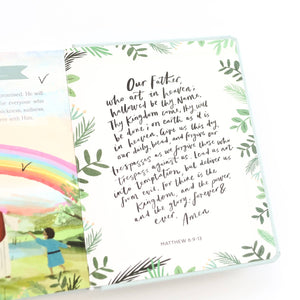 promised. He will
for everyone who
sickness, sadness,
with Him.
Our Father,
who art in heaven,
hallowed be thy Name.
Thy Kingdom come, thy will
be done, on earth as it is
in heaven. Give us this day
our daily bread and forgive our
trespasses as we forgive those who
trespass against us. Lead us not
into temptation, but deliver us
from evil. For thine is the
Kingdom, and the power,
and the glory, forever &
ever. Amen
MATTHEW 6:9-13